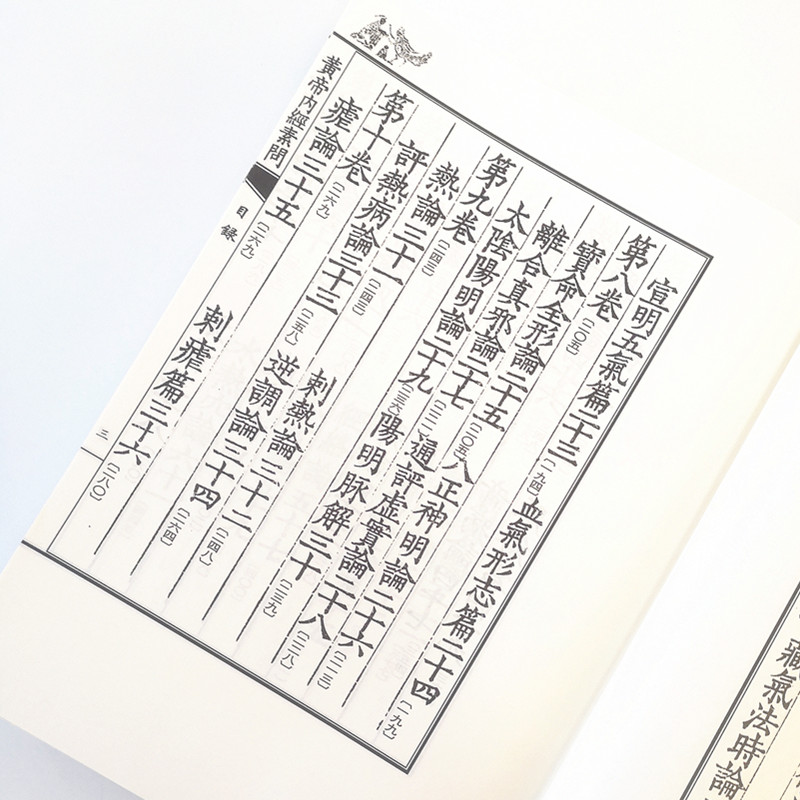 藏氣法時論
宣明五氣篇二十三〔一九四〕 血氣形志篇二十四〔一九九〕
第八卷〔二〇五〕
寶命全形論二十五〔二〇五〕 八正神明論二十六〔二一三〕
離合真邪論二十七〔二二二〕 通評虛實論二十八〔二二八〕
太陰陽明論二十九〔二三六〕 陽明脉解三十〔二三九〕
第九卷〔二四三〕
熱論三十一〔二四三〕 刺熱論三十二〔二四八〕
評熱病論三十三〔二五八〕 逆調論三十四〔二六四〕
第十卷〔二六九〕
瘧論三十五〔二六九〕 刺瘧篇三十六〔二八〇〕
黃帝內經素問 目錄 三